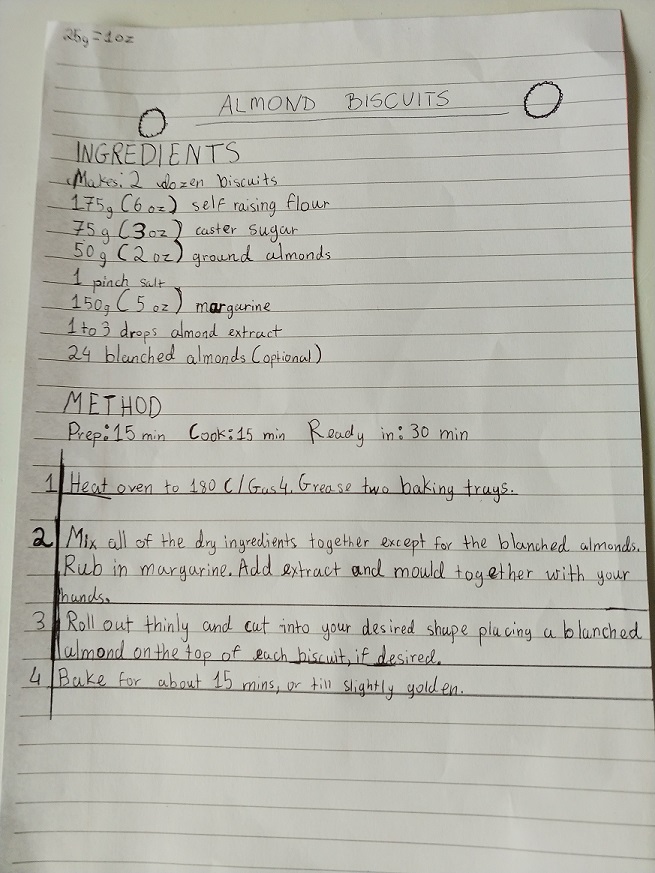 25g = 1oz
ALMOND BISCUITS
INGREDIENTS
Makes: 2 dozen biscuits
175g (6 oz) self raising flour
75g (3oz) caster sugar
50g (2 oz) ground almonds
1 pinch salt
150g (5 oz) margarine
1 to 3 drops almond extract
24 blanched almonds (optional)
METHOD
Prep: 15 min Cook: 15 min Ready in: 30 min
1 Heat oven to 180 C/Gas4. Grease two baking trays.
2 Mix all of the dry ingredients together except for the blanched almonds.
Rub in margarine. Add extract and mould together with your
hands.
3 Roll out thinly and cut into your desired shape placing a blanched
almond on the top of each biscuit, if desired.
4 Bake for about 15 mins, or till slightly golden.